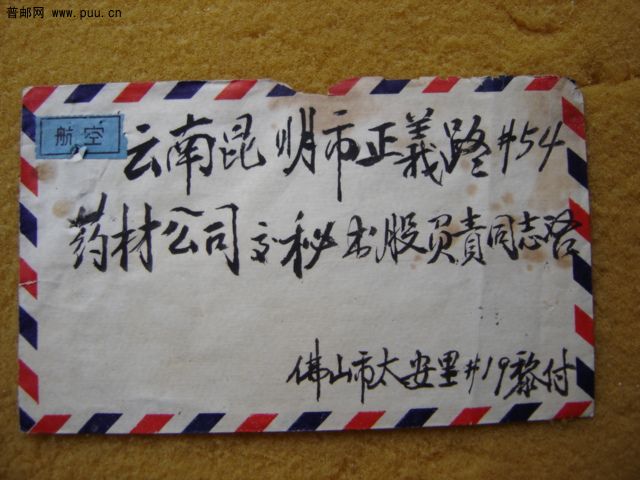 普邮网 www.puu.cn
航空
云南昆明市正義路#54
药材公司交秘书股负責同志启
佛山市太安里#19黎付